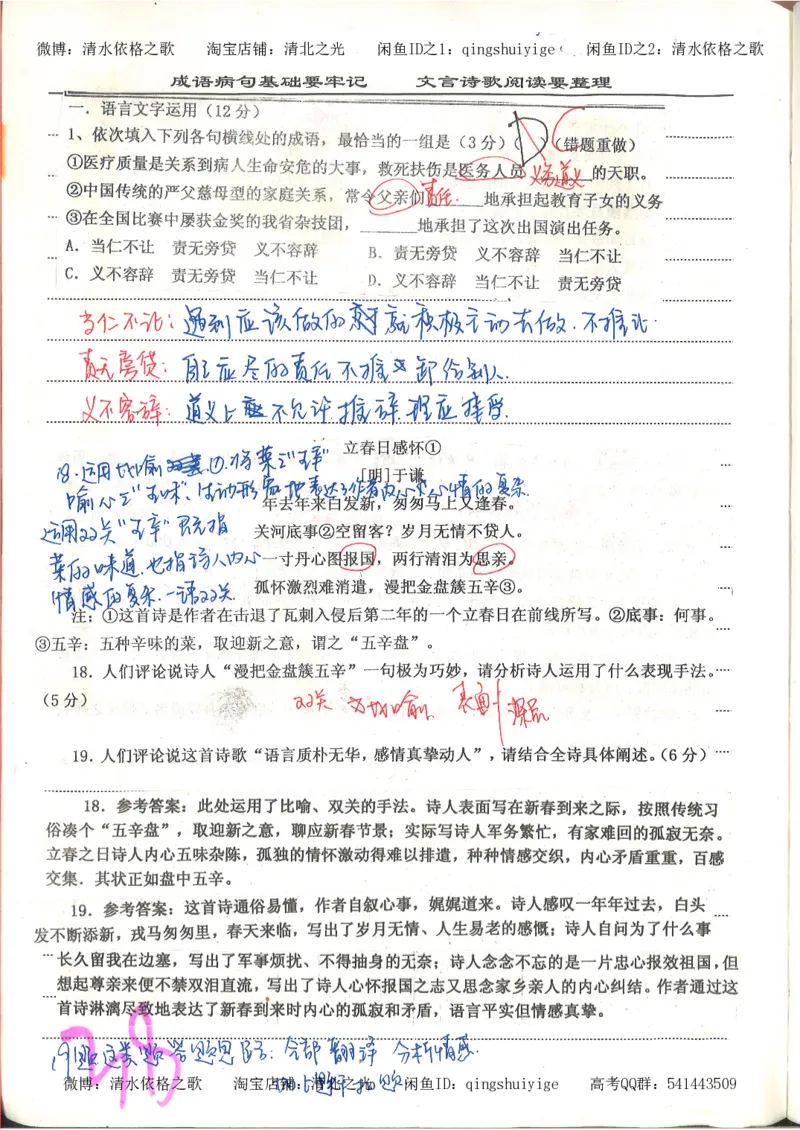 微博：清水依格之歌 淘宝店铺：清北之光 闲鱼ID之1：qingshuiyige 闲鱼ID之2：清水依格之歌
成语病句基础要牢记 文言诗歌阅读要整理
一．语言文字运用（12分）
1、依次填入下列各句横线处的成语，最恰当的一组是（3分）（D）（错题重做）
C
①医疗质量是关系到病人生命安危的大事，救死扶伤是医务人员 的天职。
义务道义
②中国传统的严父慈母型的家庭关系，常令父亲们____地承担起教育子女的义务
责任
③在全国比赛中屡获金奖的我省杂技团，______地承担了这次出国演出任务。
A．当仁不让 责无旁贷 义不容辞 B．责无旁贷 义不容辞 当仁不让
C．义不容辞 责无旁贷 当仁不让 D．义不容辞 当仁不让 责无旁贷
当仁不让：遇到应该做的事就积极主动去做．不推让．
责无旁贷：自己应尽的责任不推卸给别人．
义不容辞：道义上不允许推辞 理应接受．
立春日感怀①
[明]于谦
年去年来白发新，匆匆马上又逢春。
关河底事②空留客？岁月无情不贷人。
一寸丹心图报国，两行清泪为思亲。
孤怀激烈难消遣，漫把金盘簇五辛③。
18．运用比喻 ①将菜之"五辛"
喻心之"五味"，生动形象地表达了作者内心情的复杂．
运用双关"五辛"既指
菜的味道，也指诗人内心
情感的复杂．一语双关
注：①这首诗是作者在击退了瓦刺入侵后第二年的一个立春日在前线所写。②底事：何事。
③五辛：五种辛味的菜，取迎新之意，谓之“五辛盘”。
18．人们评论说诗人“漫把金盘簇五辛”一句极为巧妙，请分析诗人运用了什么表现手法。
（5分）
双关 比喻 表面 深层
19．人们评论说这首诗歌“语言质朴无华，感情真挚动人”，请结合全诗具体阐述。（6分）
18．参考答案：此处运用了比喻、双关的手法。诗人表面写在新春到来之际，按照传统习
俗凑个“五辛盘”，取迎新之意，聊应新春节景；实际写诗人军务繁忙，有家难回的孤寂无奈。
立春之日诗人内心五味杂陈，孤独的情怀激动得难以排遣，种种情感交织，内心矛盾重重，百感
交集．其状正如盘中五辛。
19．参考答案：这首诗通俗易懂，作者自叙心事，娓娓道来。诗人感叹一年年过去，白头
发不断添新，戎马匆匆里，春天来临，写出了岁月无情、人生易老的感慨；诗人自问为了什么事
长久留我在边塞，写出了军事烦扰、不得抽身的无奈；诗人念念不忘的是一片忠心报效祖国，但
想起尊亲来便不禁双泪直流，写出了诗人心怀报国之志又思念家乡亲人的内心纠结。作者通过这
首诗淋漓尽致地表达了新春到来时内心的孤寂和矛盾，语言平实但情感真挚。
19题这类题答题思路：全部翻译 分析情感．
微博：清水依格之歌 淘宝店铺：清北之光 闲鱼ID：qingshuiyige 高考QQ群：541443509